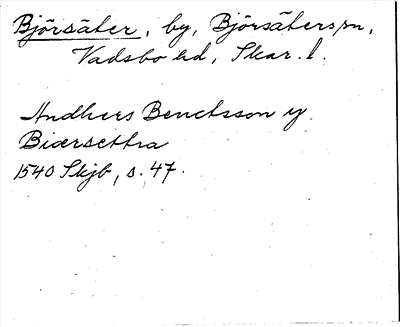 Björsäter, by, Björsäters sn,
Vadsbo hd, Skar. l.
Andhers Benctsson y
Biærsettra
1540 Skjb, s. 47.